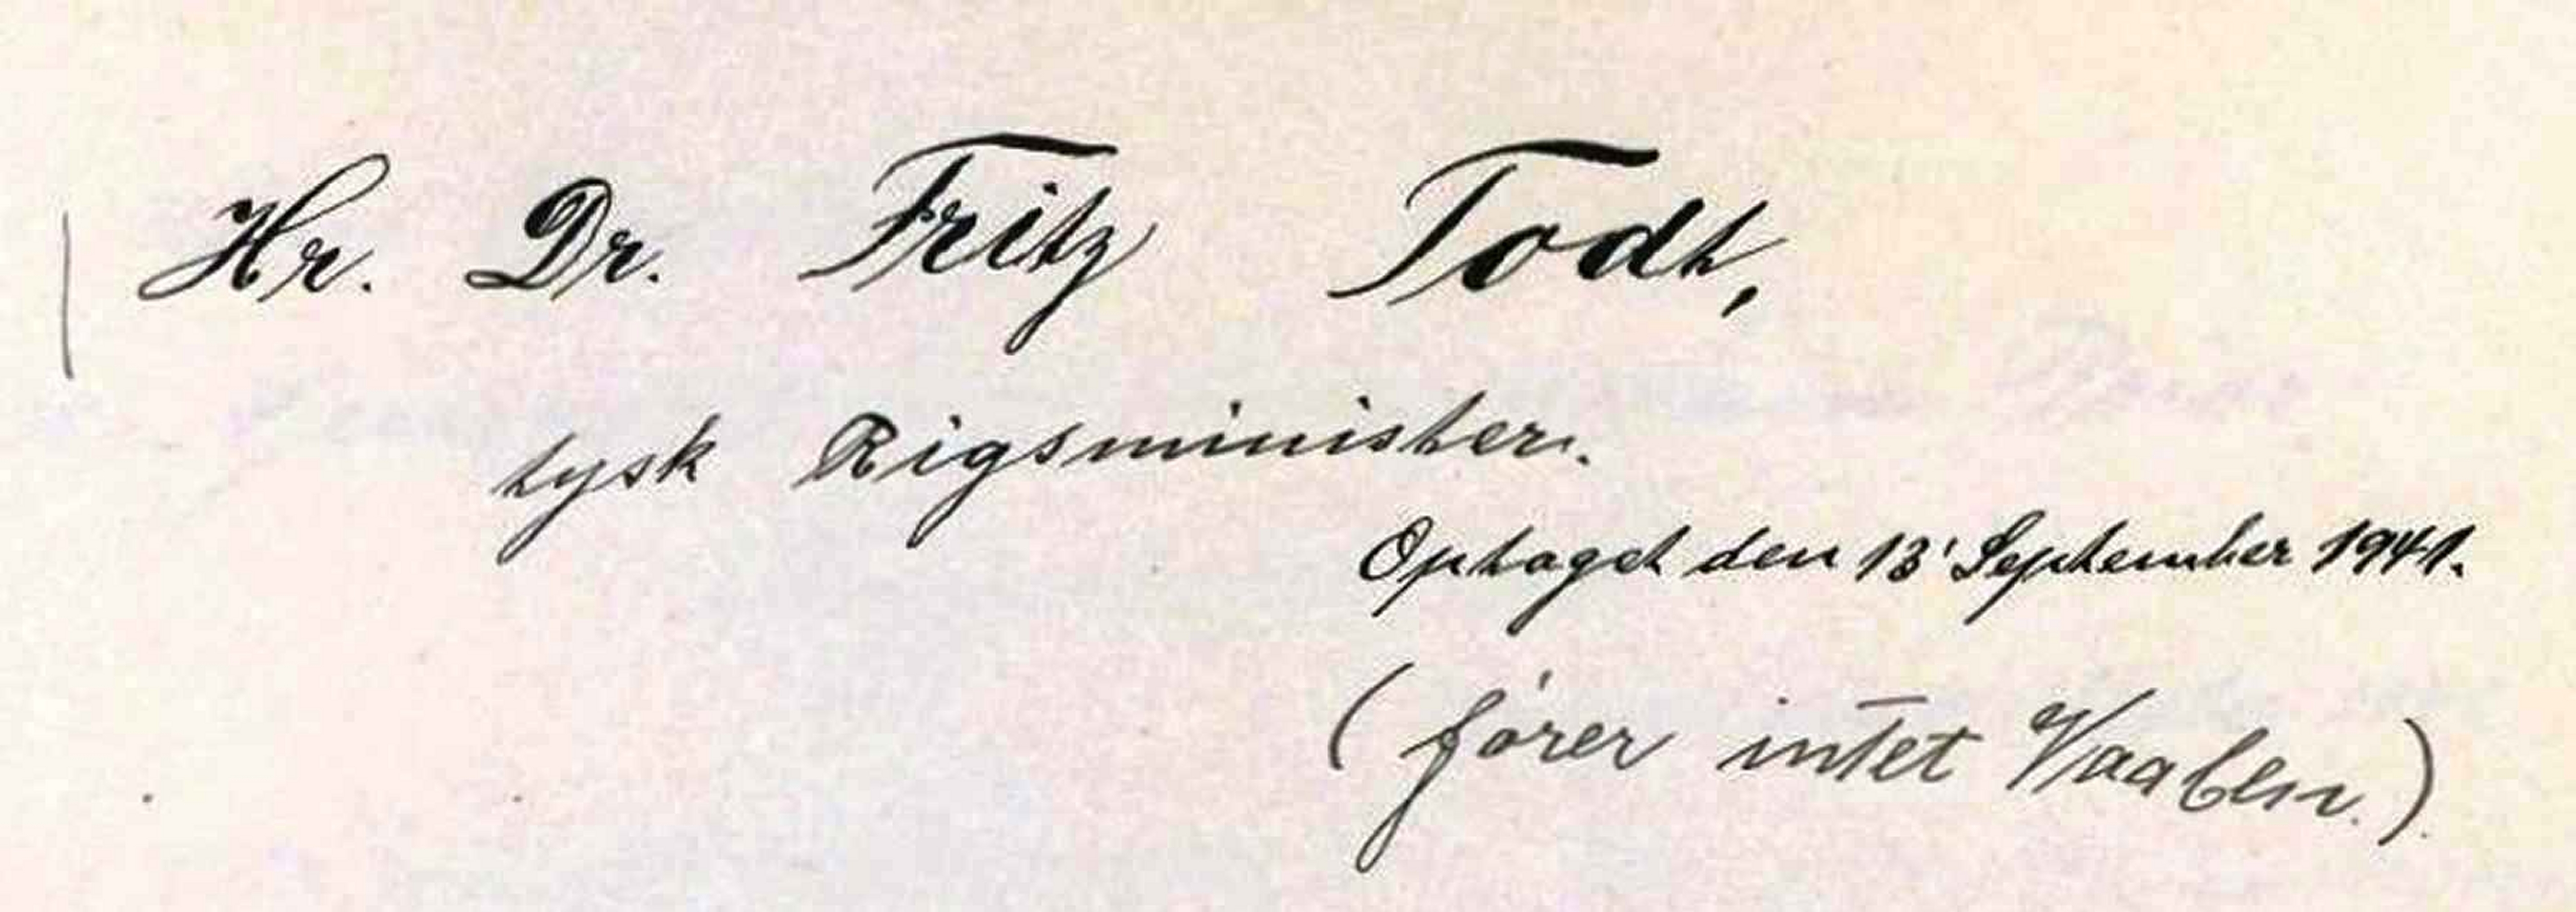 Hr. Dr. Fritz Todt,
tysk Rigsminister.
Optaget den 13' September 1941.
(fører intet Vaaben.)